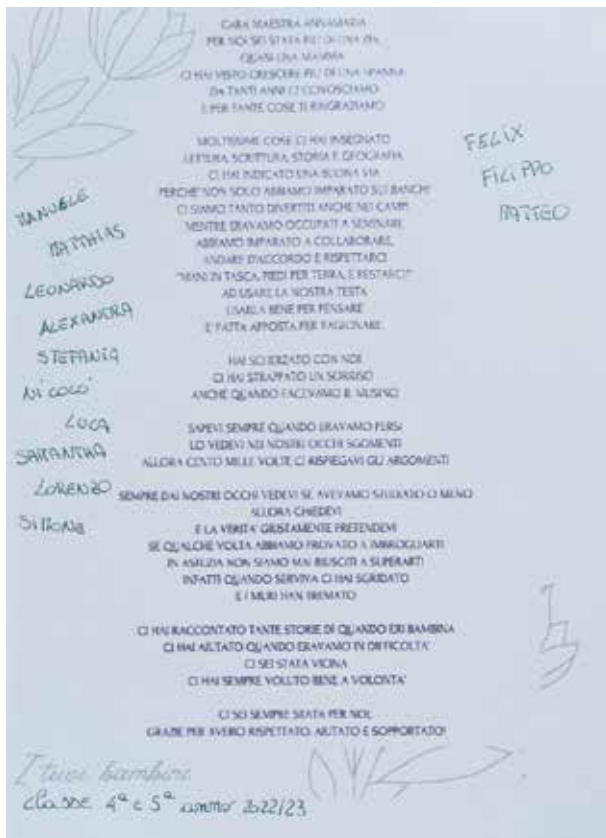 CARA MAESTRA ANNAMARIA
PER NOI SEI STATA PIU' DI UNA ZIA,
QUASI UNA MAMMA
CI HAI VISTO CRESCERE PIU' DI UNA SPANNA
DA TANTI ANNI CI CONOSCIAMO
E PER TANTE COSE TI RINGRAZIAMO
MOLTISSIME COSE CI HAI INSEGNATO
LETTURA, SCRITTURA, STORIA E GEOGRAFIA
CI HAI INDICATO UNA BUONA VIA
PERCHE' NON SOLO ABBIAMO IMPARATO SUI BANCHI
CI SIAMO TANTO DIVERTITI ANCHE NEI CAMPI
MENTRE ERAVAMO OCCUPATI A SEMINARE,
ABBIAMO IMPARATO A COLLABORARE,
ANDARE D'ACCORDO E RISPETTARCI
"MANI IN TASCA, PIEDI PER TERRA, E RESTARCI!"
AD USARE LA NOSTRA TESTA
USARLA BENE PER PENSARE
E' FATTA APPOSTA PER RAGIONARE.
HAI SCHERZATO CON NOI
CI HAI STRAPPATO UN SORRISO
ANCHE QUANDO FACEVAMO IL MUSINO
SAPEVI SEMPRE QUANDO ERAVAMO PERSI
LO VEDEVI NEI NOSTRI OCCHI SGOMENTI
ALLORA CENTO MILLE VOLTE CI RISPIEGAVI GLI ARGOMENTI
SEMPRE DAI NOSTRI OCCHI VEDEVI SE AVEVAMO STUDIATO O MENO
ALLORA CHIEDEVI
E LA VERITA' GIUSTAMENTE PRETENDEVI
SE QUALCHE VOLTA ABBIAMO PROVATO A IMBROGLIARTI
IN ASTUZIA NON SIAMO MAI RIUSCITI A SUPERARTI
INFATTI QUANDO SERVIVA CI HAI SGRIDATO
E I MURI HAN TREMATO
CI HAI RACCONTATO TANTE STORIE DI QUANDO ERI BAMBINA
CI HAI AIUTATO QUANDO ERAVAMO IN DIFFICOLTA'
CI SEI STATA VICINA
CI HAI SEMPRE VOLUTO BENE A VOLONTA'
CI SEI SEMPRE STATA PER NOI,
GRAZIE PER AVERCI RISPETTATO, AIUTATO E SOPPORTATO!
MANUELE
MATTHIAS
LEONARDO
ALEXANDRA
STEFANIA
NICOLO'
LUCA
SAMANTHA
LORENZO
SIMONE
FELIX
FILIPPO
MATTEO
I tuoi bambini
classe 4ª e 5ª anno 2022/23